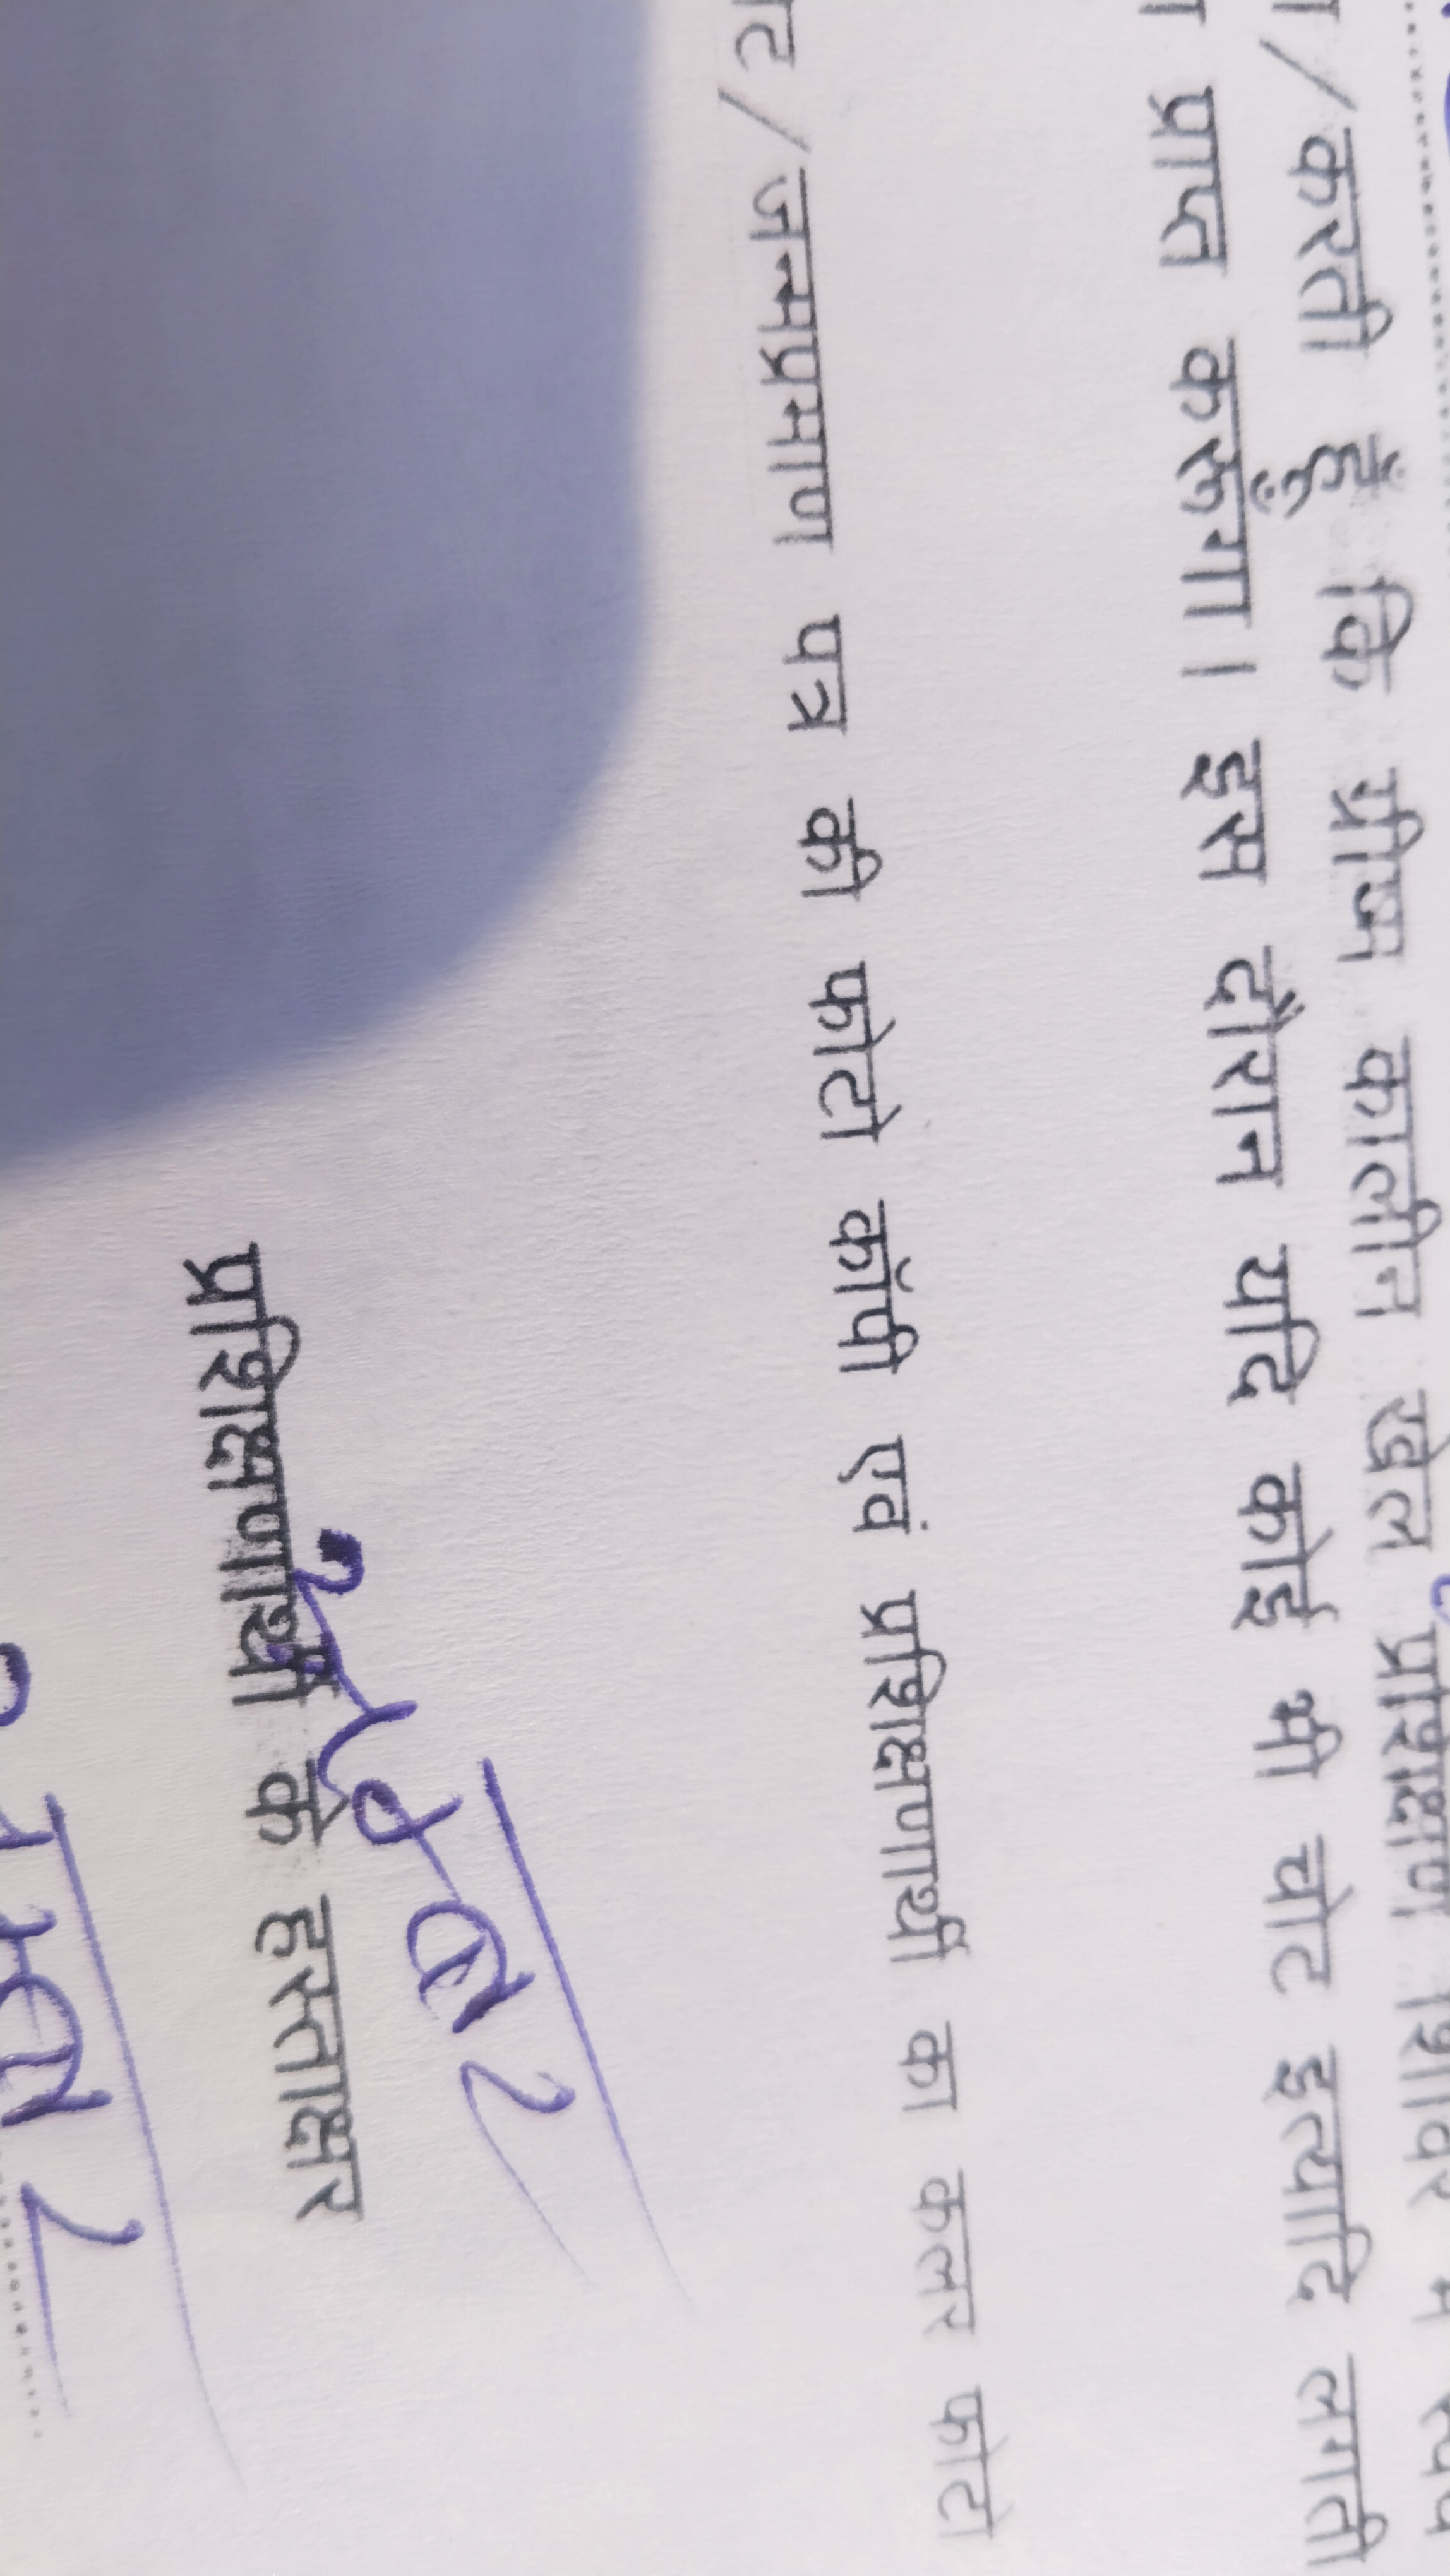 /करती हूँ कि ग्रीष्म कालीन खेल प्रशिक्षण शिविर में
प्राप्त करूँगा। इस दौरान यदि कोई भी चोट इत्यादि लगती
/जन्मप्रमाण पत्र की फोटो कॉपी एवं प्रशिक्षणार्थी का कलर फोटो
प्रशिक्षणार्थी के हस्ताक्षर